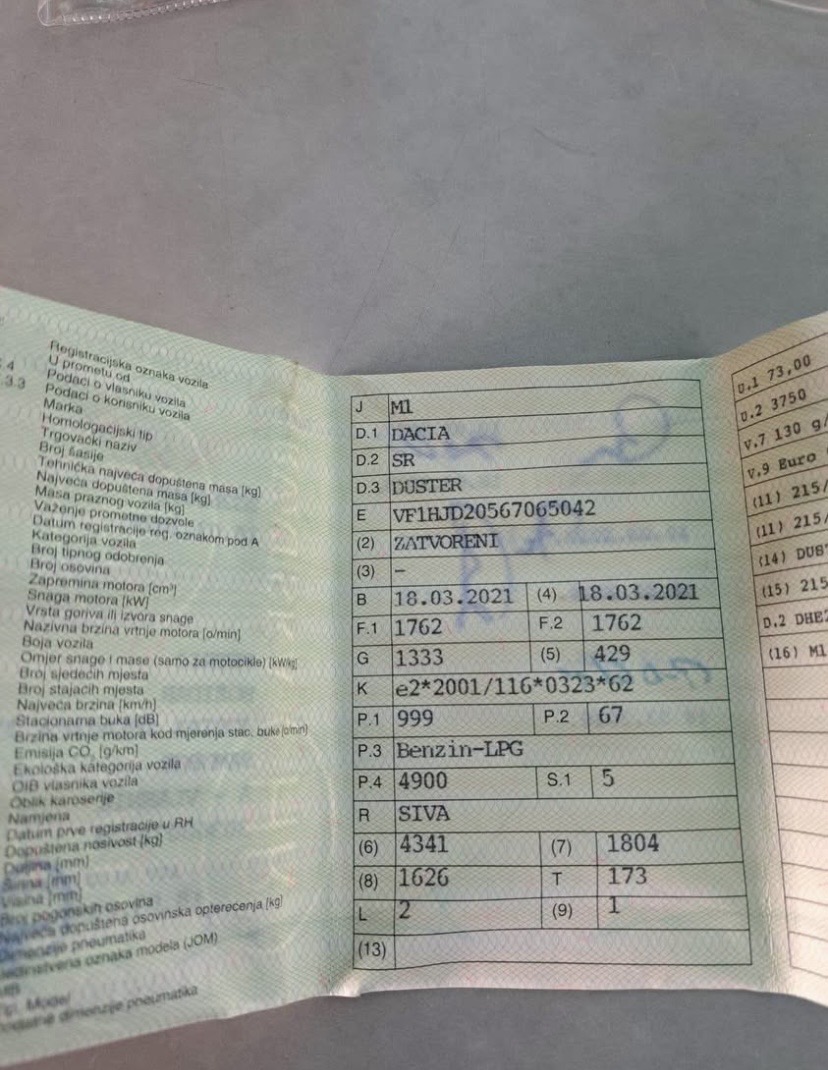 4
3.3
Registracijska oznaka vozila
U prometu od
Podaci o vlasniku vozila
Podaci o korisniku vozila
Marka
Homologacijski tip
Trgovački naziv
Broj šasije
Tehnička najveća dopuštena masa [kg]
Najveća dopuštena masa [kg]
Masa praznog vozila [kg]
Važenje prometne dozvole
Datum registracije reg. oznakom pod A
Kategorija vozila
Broj tipnog odobrenja
Broj osovina
Zapremina motora [cm³]
Snaga motora [kW]
Vrsta goriva ili izvora snage
Nazivna brzina vrtnje motora [o/min]
Boja vozila
Omjer snage i mase (samo za motocikle) [kW/kg]
Broj sjedećih mjesta
Broj stajaćih mjesta
Najveća brzina [km/h]
Stacionarna buka [dB]
Brzina vrtnje motora kod mjerenja stac. buke [o/min]
Emisija CO₂ [g/km]
Ekološka kategorija vozila
OIB vlasnika vozila
Oblik karoserije
Namjena
Datum prve registracije u RH
Dopuštena nosivost [kg]
Dužina [mm]
Širina [mm]
Visina [mm]
Broj pogonskih osovina
Najveća dopuštena osovinska opterećenja [kg]
Dimenzije pneumatika
Jedinstvena oznaka modela (JOM)
Model
dimenzije pneumatika
J M1
D.1 DACIA
D.2 SR
D.3 DUSTER
E VF1HJD20567065042
(2) ZATVORENI
(3) –
B 18.03.2021 (4) 18.03.2021
F.1 1762 F.2 1762
G 1333 (5) 429
K e2*2001/116*0323*62
P.1 999 P.2 67
P.3 Benzin-LPG
P.4 4900 S.1 5
R SIVA
(6) 4341 (7) 1804
(8) 1626 T 173
L 2 (9) 1
(13)
U.1 73,00
U.2 3750
V.7 130 g/
V.9 Euro
(11) 215/
(11) 215/
(14) DUS
(15) 215
D.2 DHE
(16) M1